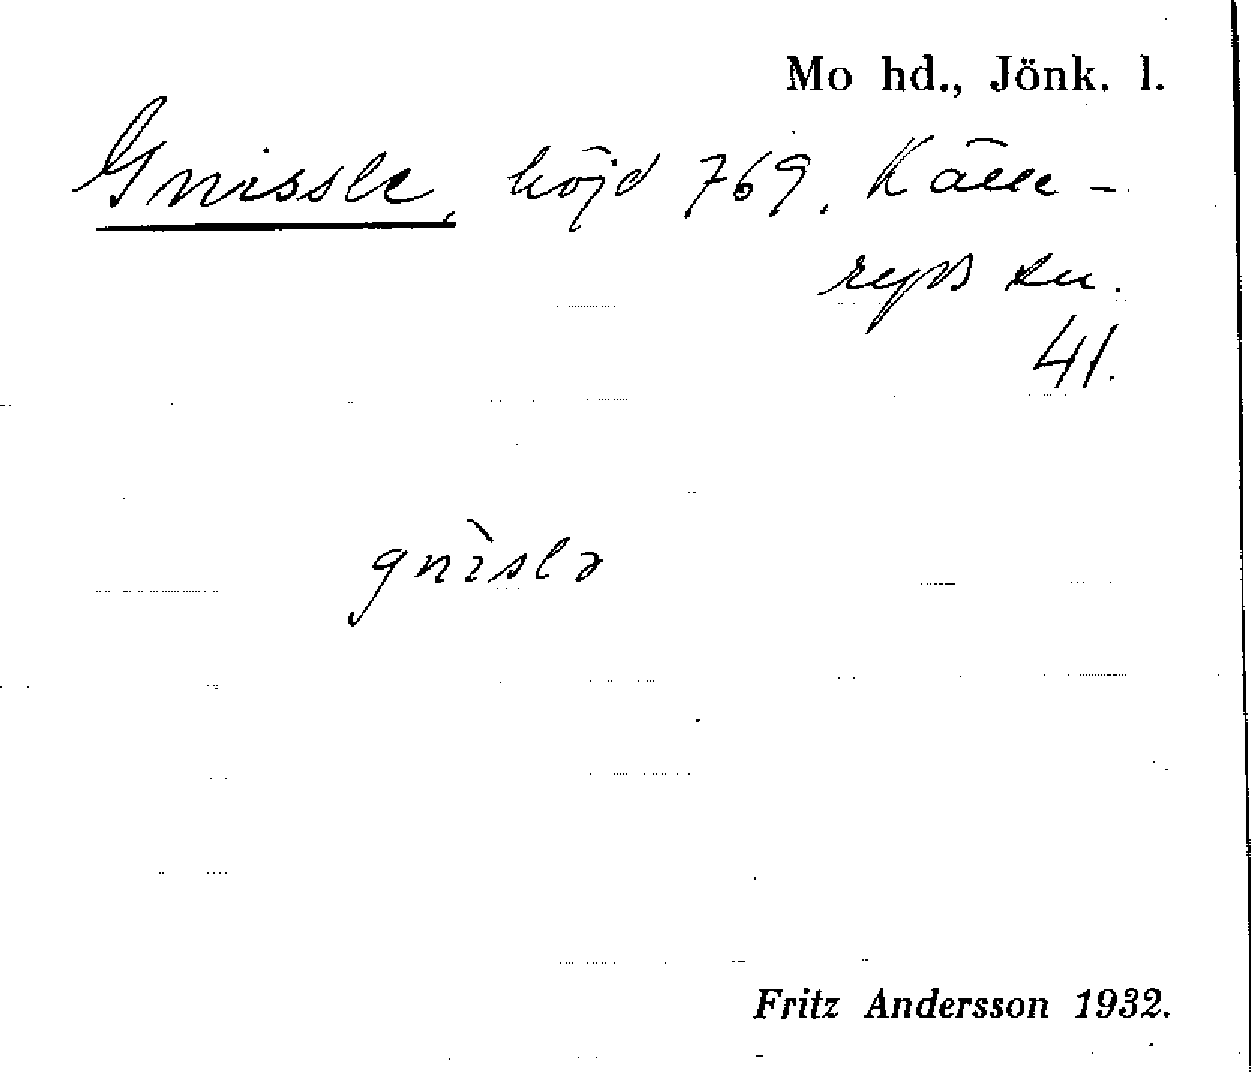 Mo hd., Jönk. l.
Gnissle, höjd 769. Källe-
ryds sn.
41.
gnìslə
Fritz Andersson 1932.